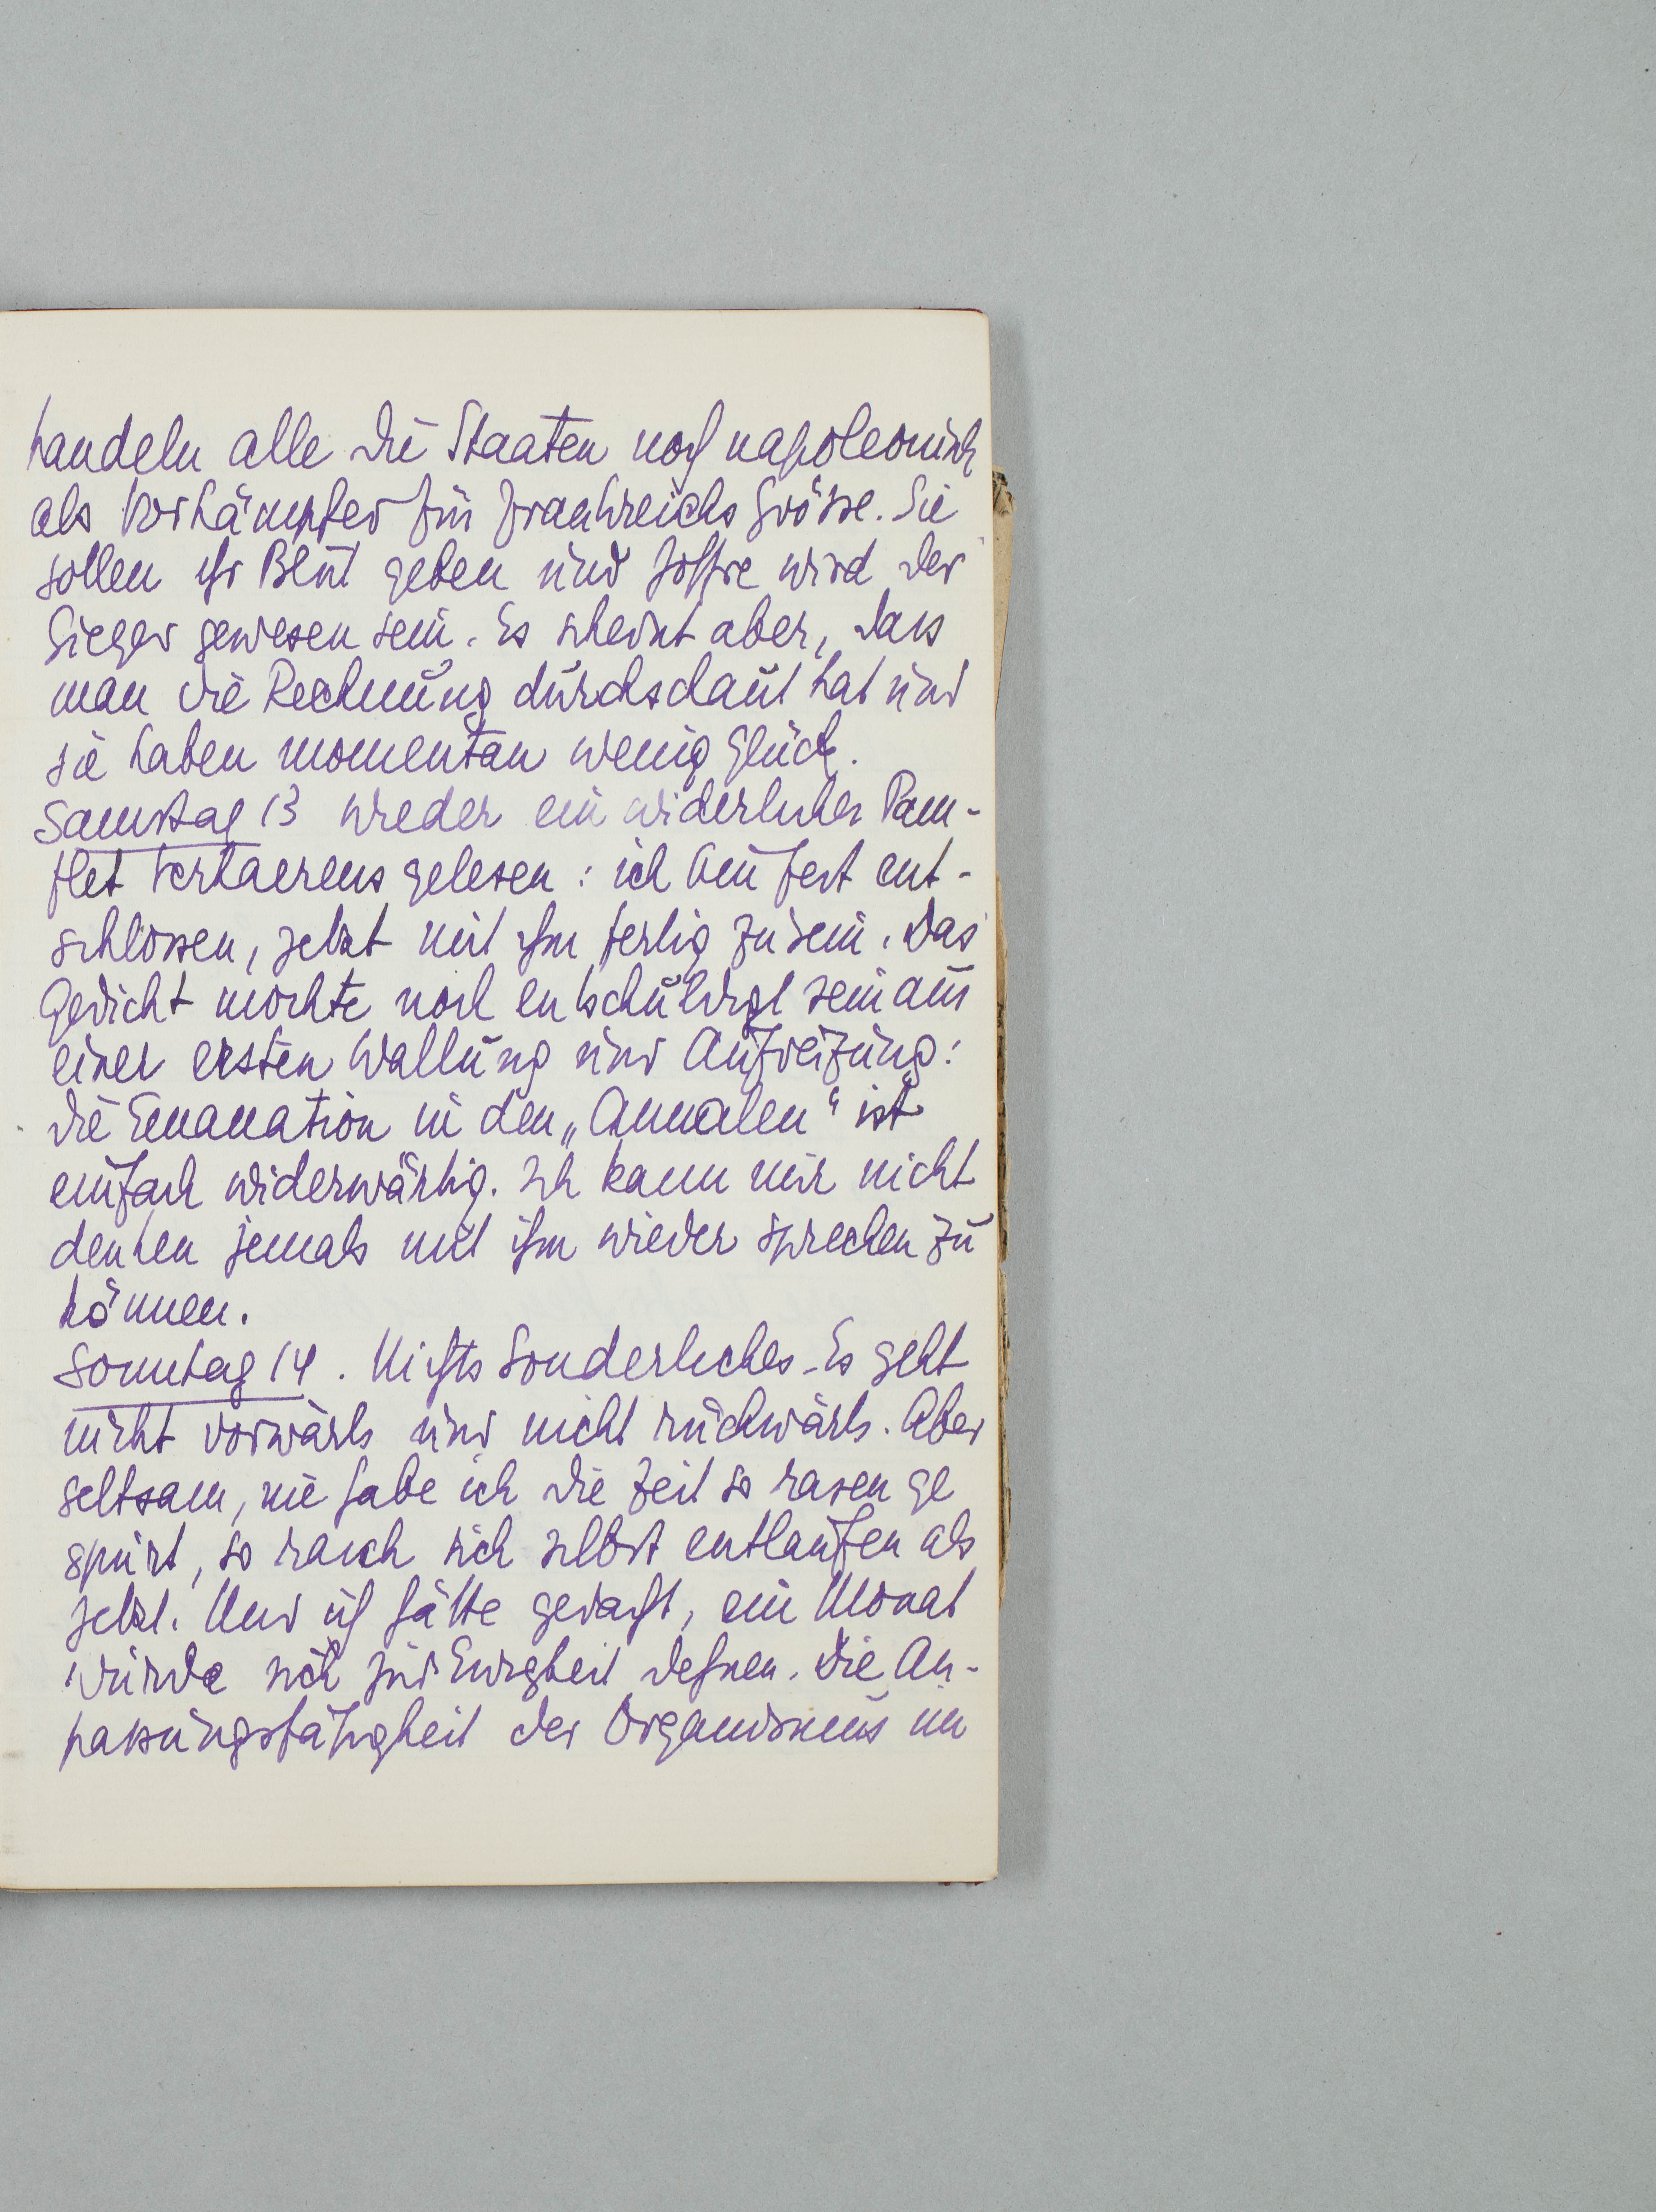 handeln alle die Staaten noch napoleonisch
als Vorkämpfer für Frankreichs Grösse. Sie
sollen ihr Blut geben und Joffre wird der
Sieger gewesen sein. Es scheint aber, dass
man die Rechnung durchschaut hat und
sie haben momentan wenig Glück.
Samstag 13 wieder ein widerliches Pam-
flet Verhaerens gelesen: ich bin fest ent-
schlossen, jetzt mit ihm fertig zu sein. Das
Gedicht mochte noch entschuldigt sein aus
einer ersten Wallung und Aufreizung:
die Emanation in den „Annalen“ ist
einfach widerwärtig. Ich kann mir nicht
denken jemals mit ihm wieder sprechen zu
können.
Sonntag 14. Nichts Sonderliches. Es geht
nicht vorwärts und nicht rückwärts. Aber
seltsam, nie habe ich die Zeit so rasen ge
spürt, so rasch sich selbst entlaufen als
jetzt. Und ich hätte gedacht, ein Monat
würde sich zur Ewigkeit dehnen. Die An-
passungsfähigkeit des Organismus im